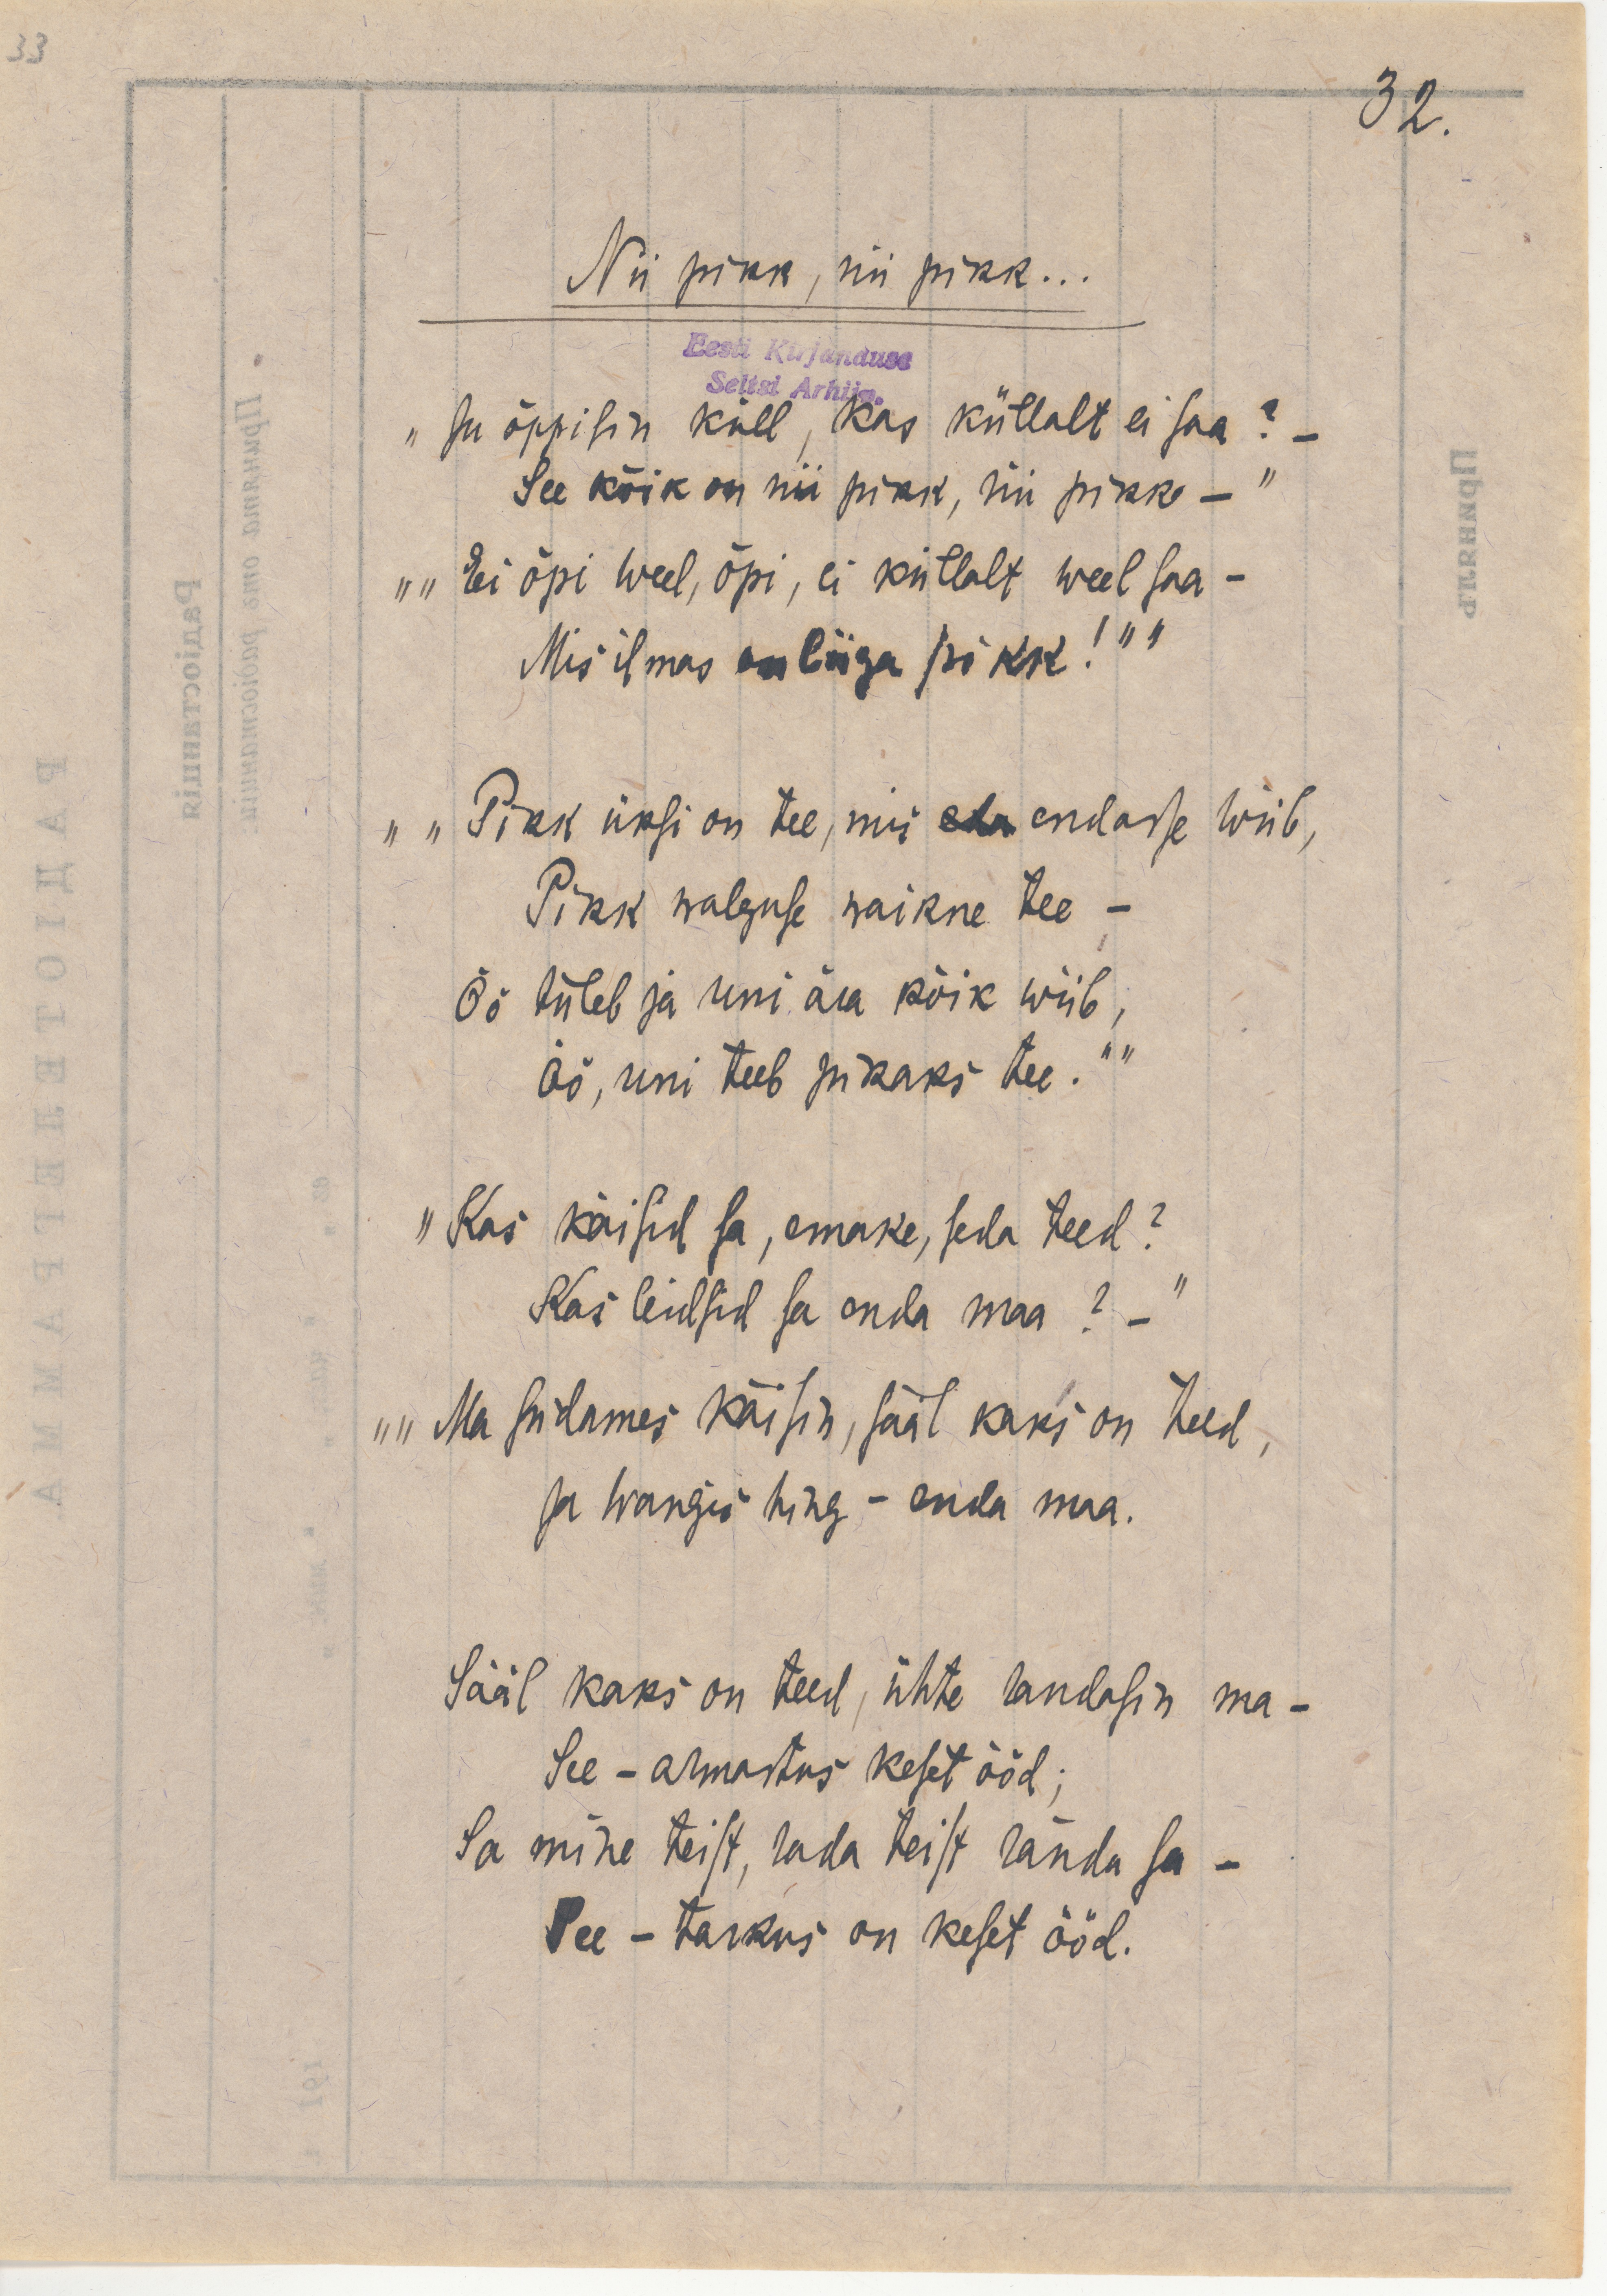 33
32.
Nii pikk, nii pikk...
Eesti Kirjanduse
Seltsi Arhiiv.
„Ju õppisin küll, kas küllalt ei saa? –
See kõik on nii pikk, nii pikk – "
„„Ei õpi weel, õpi, ei küllalt weel saa –
Mis ilmas on liiga pikk!""
„„Pikk üksi on tee, mis endasse wiib,
Pikk walguse waikne tee –
Öö tuleb ja uni ära kõik wiib,
Öö, uni teeb pikaks tee.""
„Kas käisid sa, emake, seda teed?
Kas leidsid sa enda maa? –"
„„Ma südames käisin, sääl kaks on teed,
Ja wangis hing – enda maa.
Sääl kaks on teed, ühte randasin ma –
See – armastus keset ööd;
Sa mine teist, rada teist rända sa –
See – tarkus on keset ööd.
РАДІОТЕЛЕГРАММА
Радіостанція
Принята отъ радіостанціи
Принялъ
191